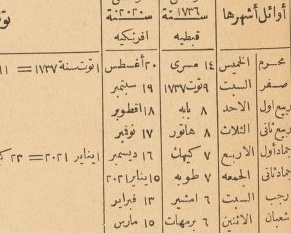 أوائل أشهرها سنة ١٧٣٦ قبطيه سنة ٢٠٢٠ افرنكيه
محرم الخميس ١٤ مسرى ٢٠ أغسطس ١ توت سنة ١٧٣٧ = ١١
صفر السبت ٩ توت ١٧٣٧ ١٩ سبتمبر
ربيع اول الاحد ٨ بابه ١٨ اقطوبر
ربيع ثانى الثلاث ٨ هاتور ١٧ نوفبر
جماد أول الاربع ٧ كيهك ١٦ ديسمبر ١ يناير ٢٠٢١ = ٢٣
جماد ثانى الجمعه ٧ طوبه ١٥ يناير ٢٠٢١
رجب السبت ٦ امشير ١٣ فبراير
شعبان الاثنين ٦ برمهات ١٥ مارس